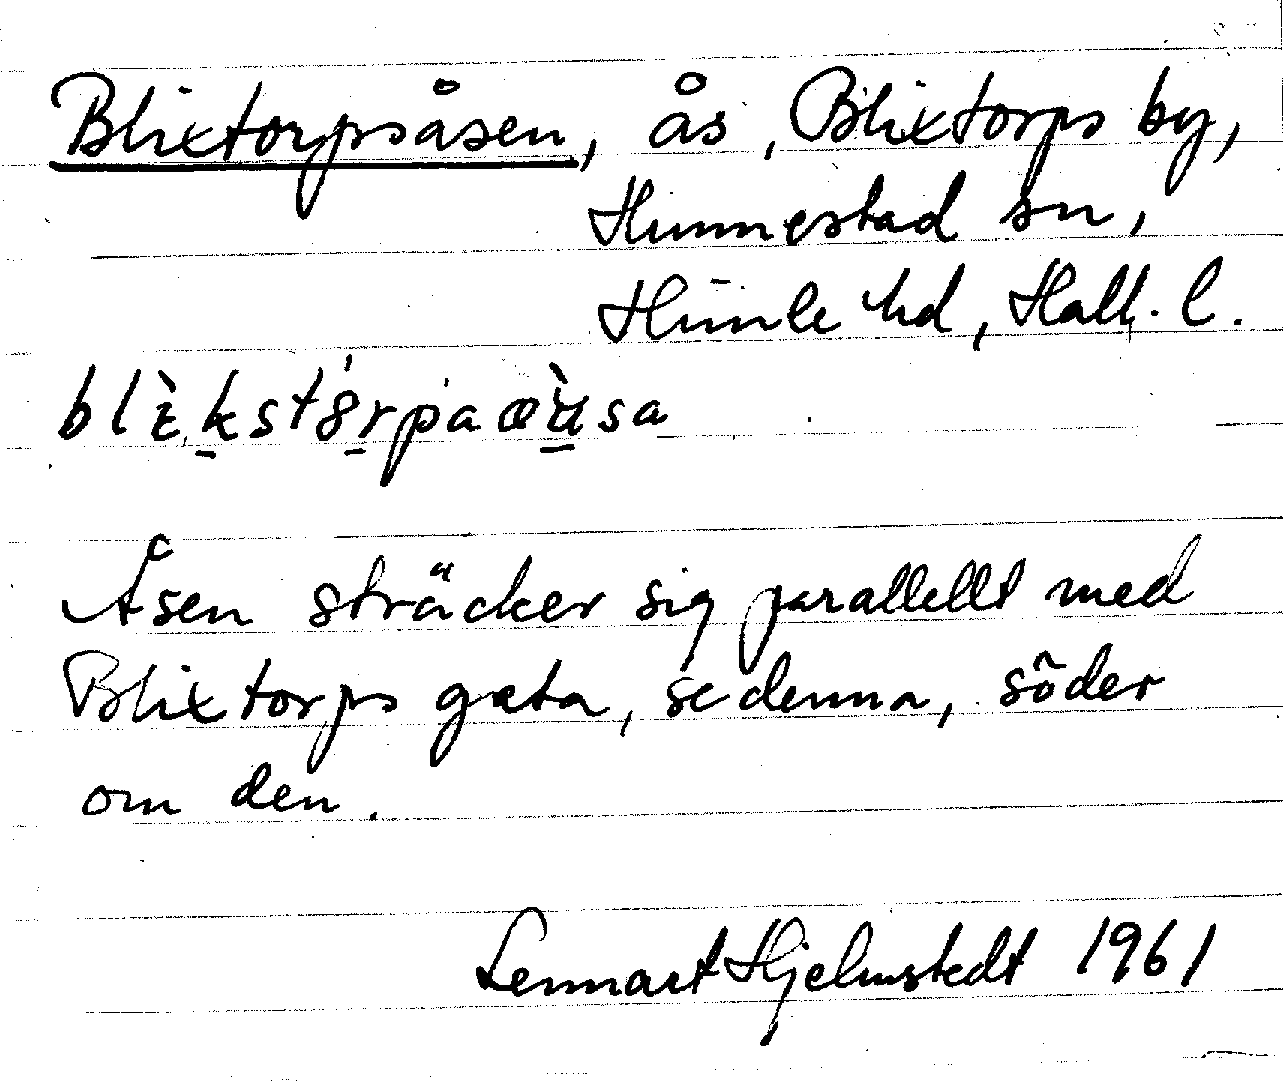 Blixtorpsåsen, ås, Blixtorps by,
Hunnestad sn,
Himle hd, Hall. l.
Åsen sträcker sig parallellt med
Blixtorps gata, se denna, söder
om den.
Lennart Hjelmstedt 1961